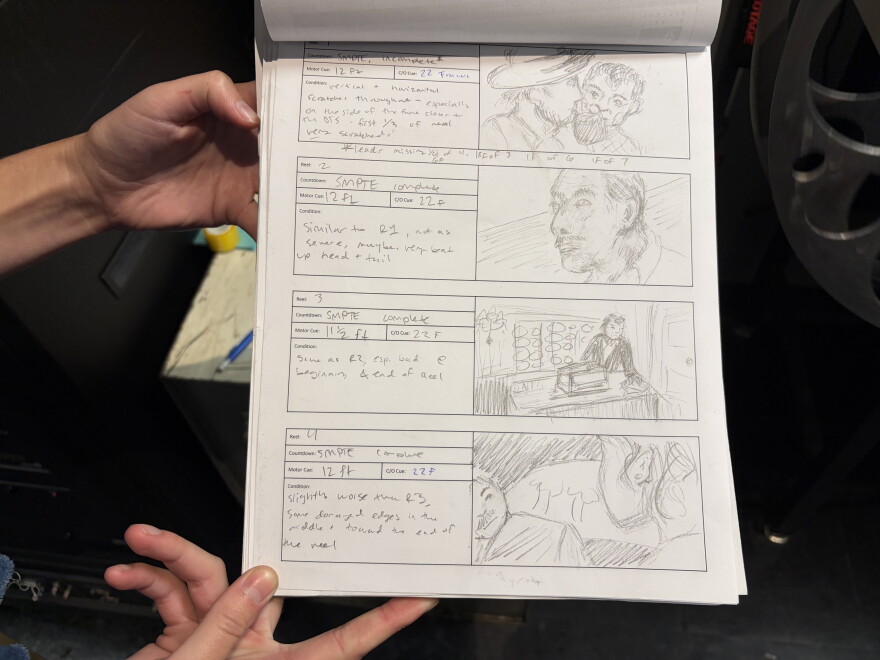 Countdown: SMPTE, incomplete*
Motor Cue: 12 Ft C/O Cue: 22 Frames
Condition: vertical + horizontal
scratches throughout - especially
on the side of the frame closer to
the first 1/3 of reel
very scratched
*leader missing 1F of 7
Reel: 2
Countdown: SMPTE complete
Motor Cue: 12 ft C/O Cue: 22 F
Condition:
similar to R1, not as
severe, maybe. very beat
up head + tail
Reel: 3
Countdown: SMPTE complete
Motor Cue: 11 1/2 ft C/O Cue: 22 F
Condition:
same as R2, esp. bad @
beginning & end of reel
Reel: 4
Countdown: SMPTE complete
Motor Cue: 12 ft C/O Cue: 22 F
Condition:
slightly worse than R3,
some damaged edges in the
middle + toward the end of
the reel